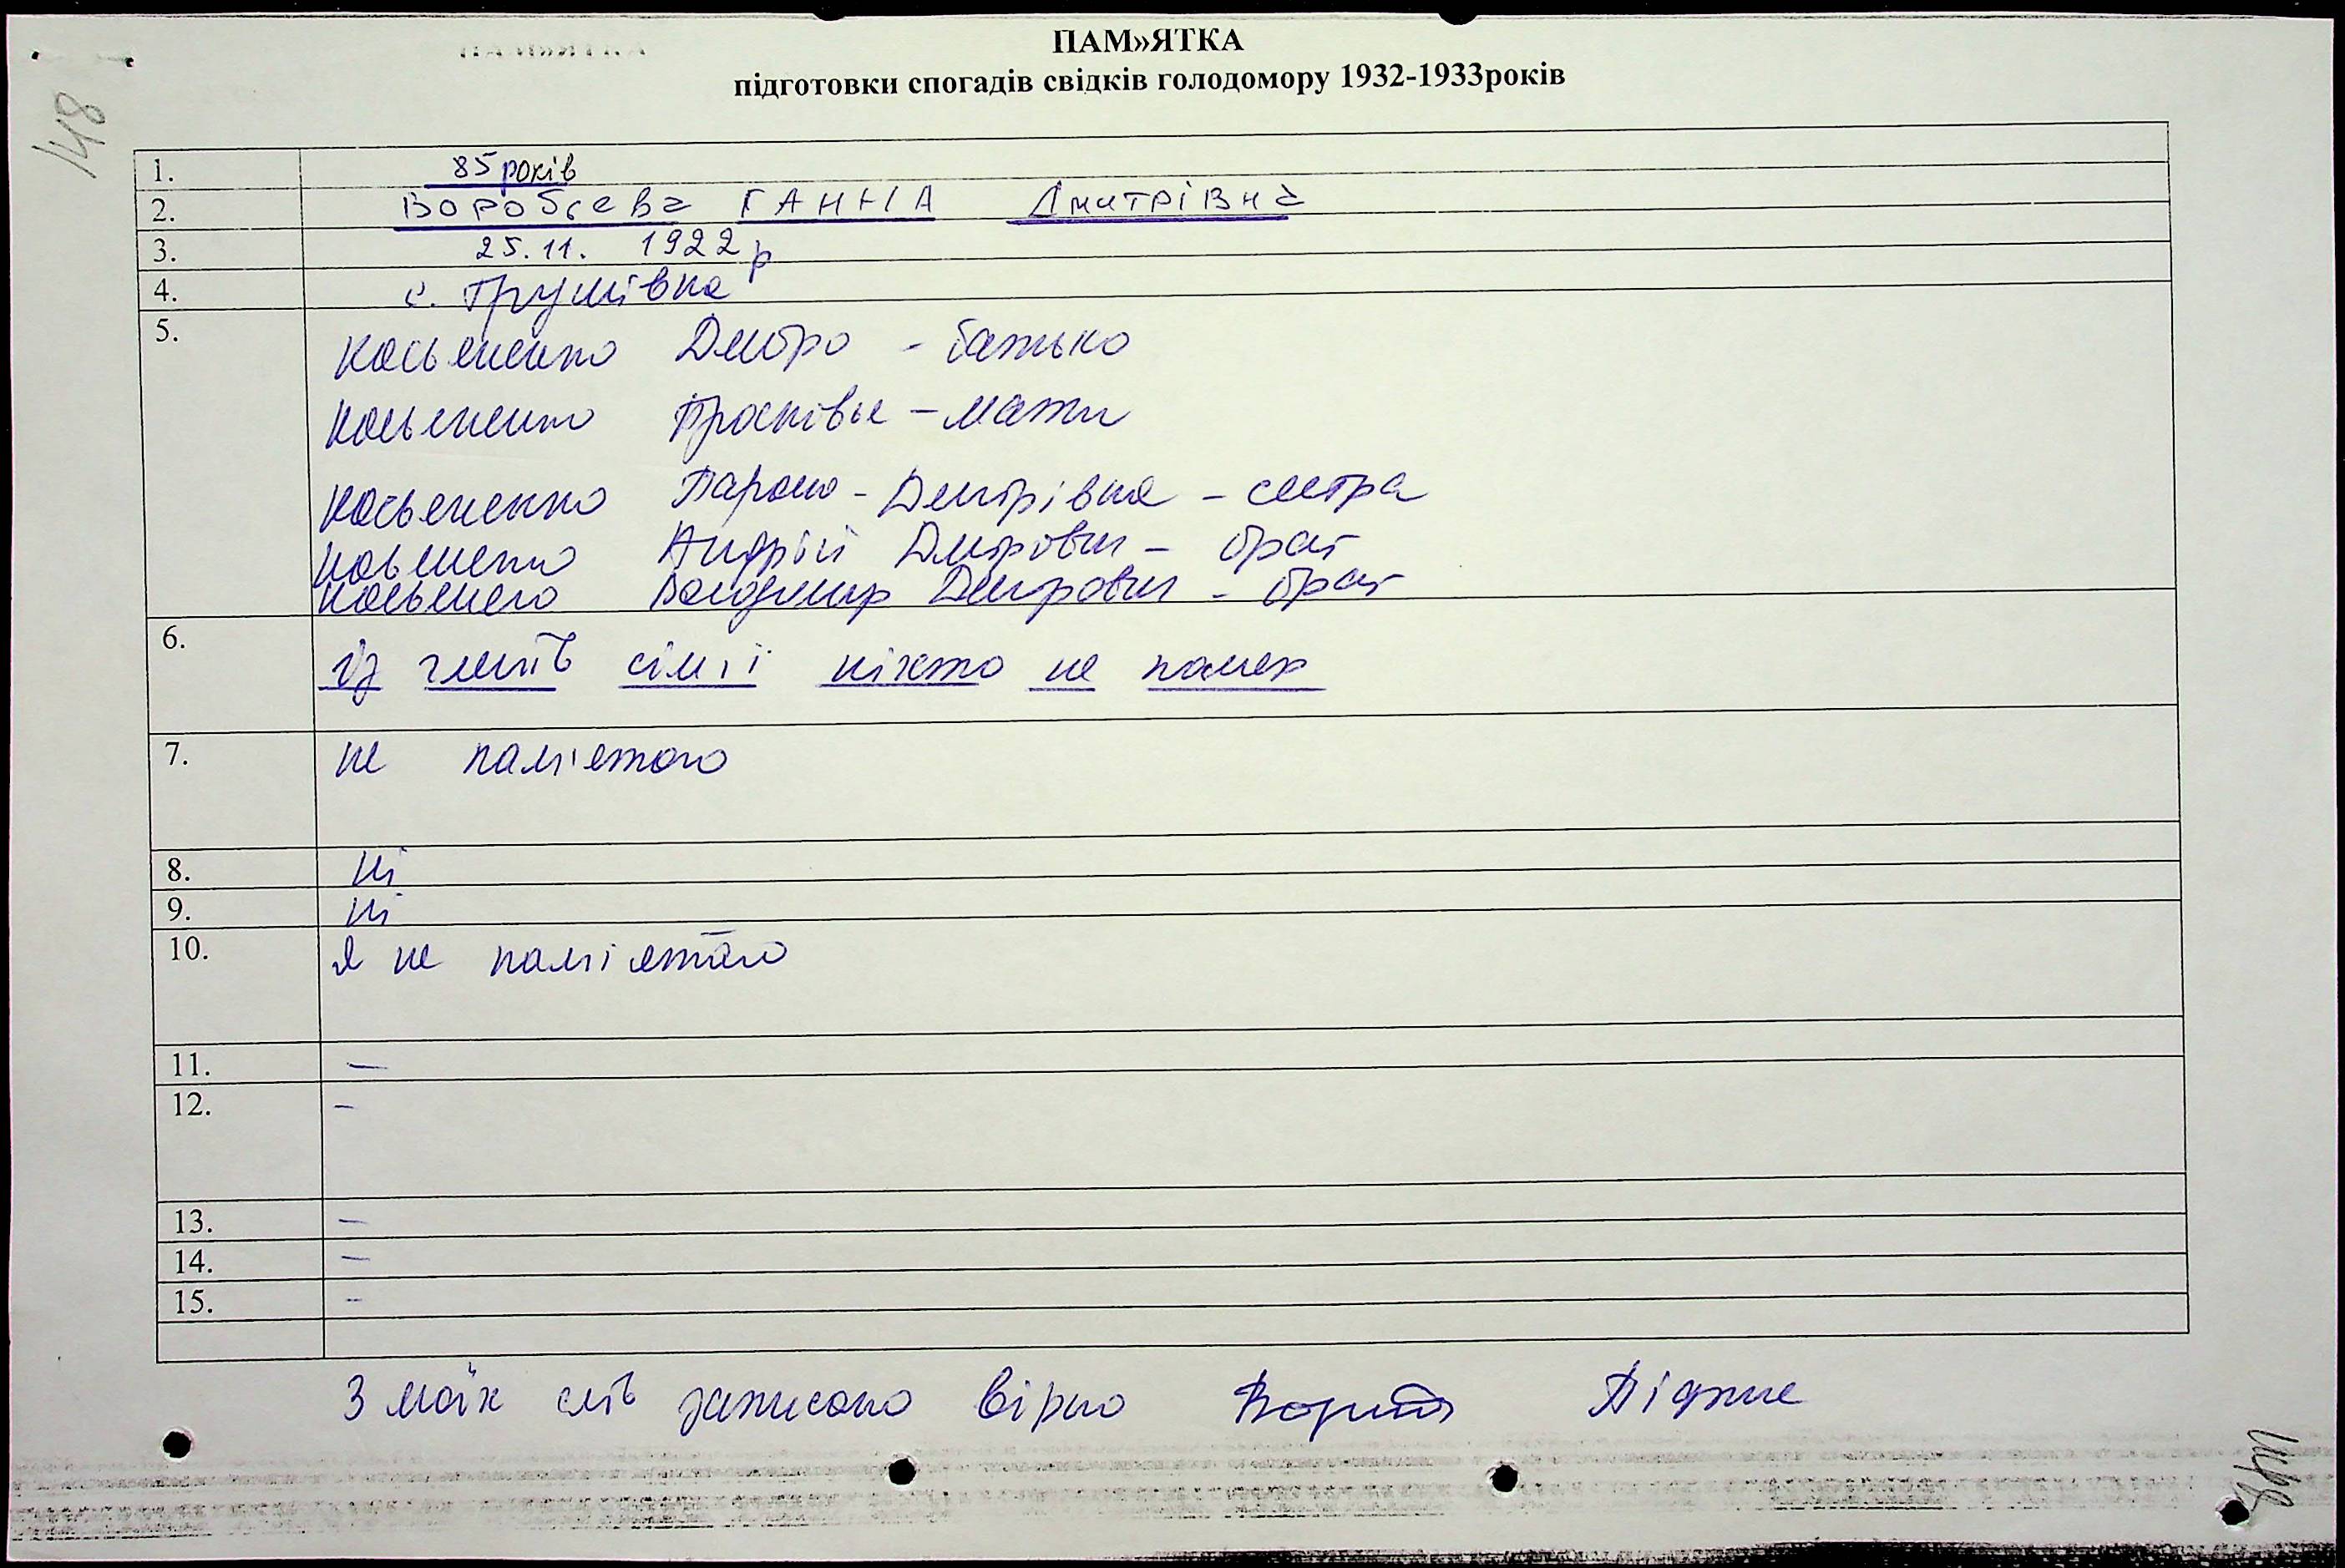 ПАМ»ЯТКА
підготовки спогадів свідків голодомору 1932-1933років
148
1. 85 років
2. Воробєва ГАННА Дмитрівна
3. 25.11. 1922 р
4. с. Грушівка
5. Касьяненко Дмітро - батько
Касьяненко Прасковья - мати
Касьяненко Дмітрівна - сестра
Андрій Дмітрович - брат
Володимир Дмітрович - брат
6. Із членів сім'ї ніхто не помер
7. не пам'ятаю
8. ні
9. ні
10. Я не пам'ятаю
11. —
12. –
13. —
14. —
15. –
З моїх слів записано вірно